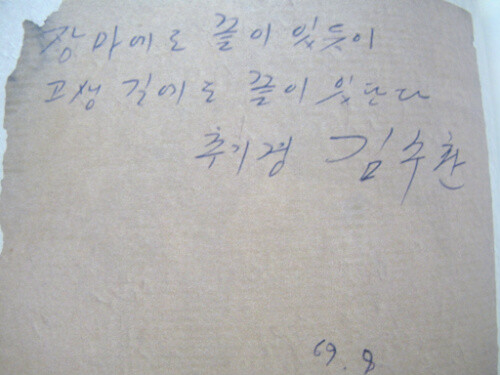 장마에도 끝이 있듯이
고생길에도 끝이 있단다
추기경 김수환
69. 8